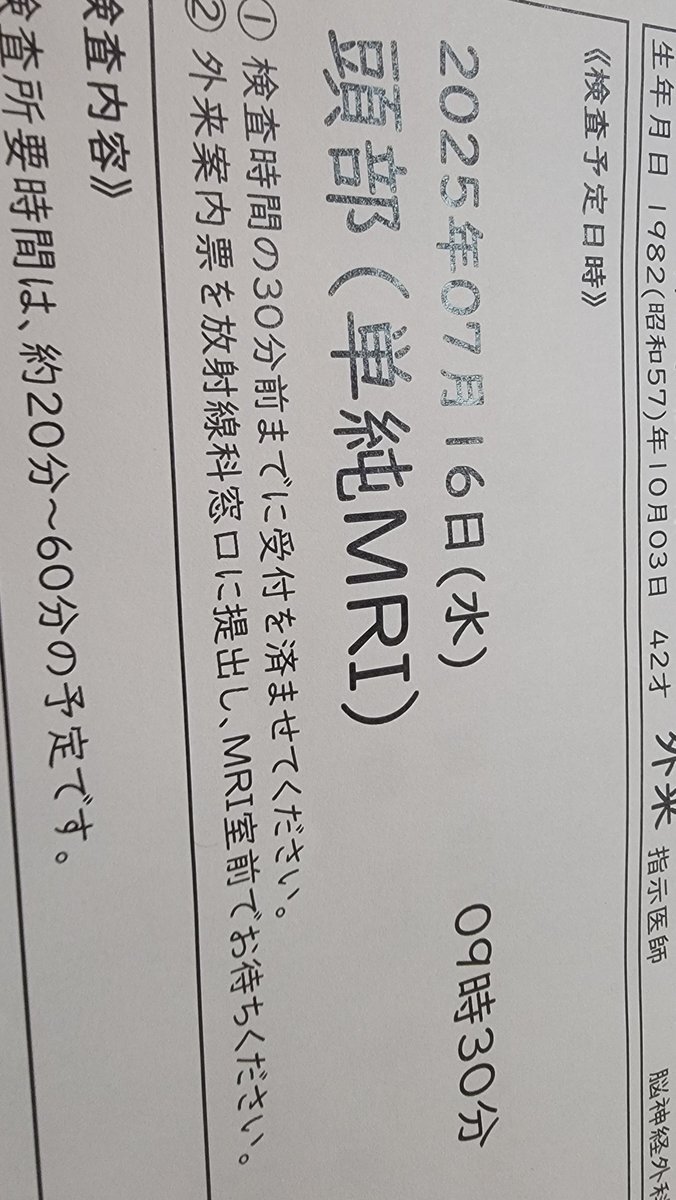 生年月日 1982(昭和57)年10月03日 42才 外来 指示医師 脳神経外科
《検査予定日時》
2025年07月16日(水) 09時30分
頭部(単純MRI)
① 検査時間の30分前までに受付を済ませてください。
② 外来案内票を放射線科窓口に提出し、MRI室前でお待ちください。
検査内容》
検査所要時間は、約20分～60分の予定です。